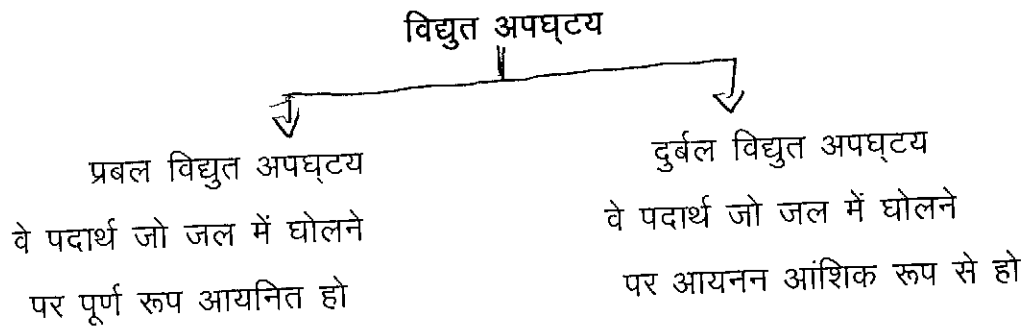 विद्युत अपघ्टय
प्रबल विद्युत अपघ्टय
वे पदार्थ जो जल में घोलने
पर पूर्ण रूप आयनित हो
दुर्बल विद्युत अपघ्टय
वे पदार्थ जो जल में घोलने
पर आयनन आंशिक रूप से हो